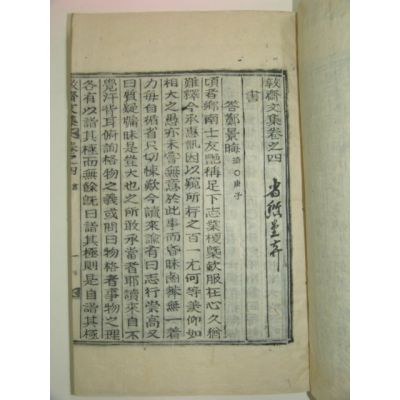 敦齋文集卷之四
書
答鄭景晦 濟○庚子
頃者鄉南士友艶稱足下志業稷槩欽服在心久猶
難釋今承惠訊因以窺所存之百一尤何等羙仰如
相大之愚亦未嘗無意於此事而昏昧鹵莽無一着
力每自循省只切悚歎今讀來諭有曰志行崇高又
曰質疑牖昧是豈大也之所敢承當者耶讀來自不
覺汗背耳俯詢格物之義或問曰物格者事物之理
各有以詣其極而無餘旣曰各詣其極則是自詣其極
敦齋文集 卷之四 書 一